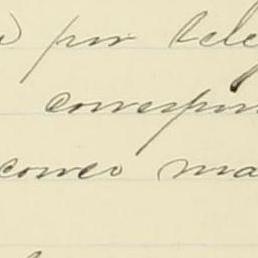 por tele
correspon
correo ma